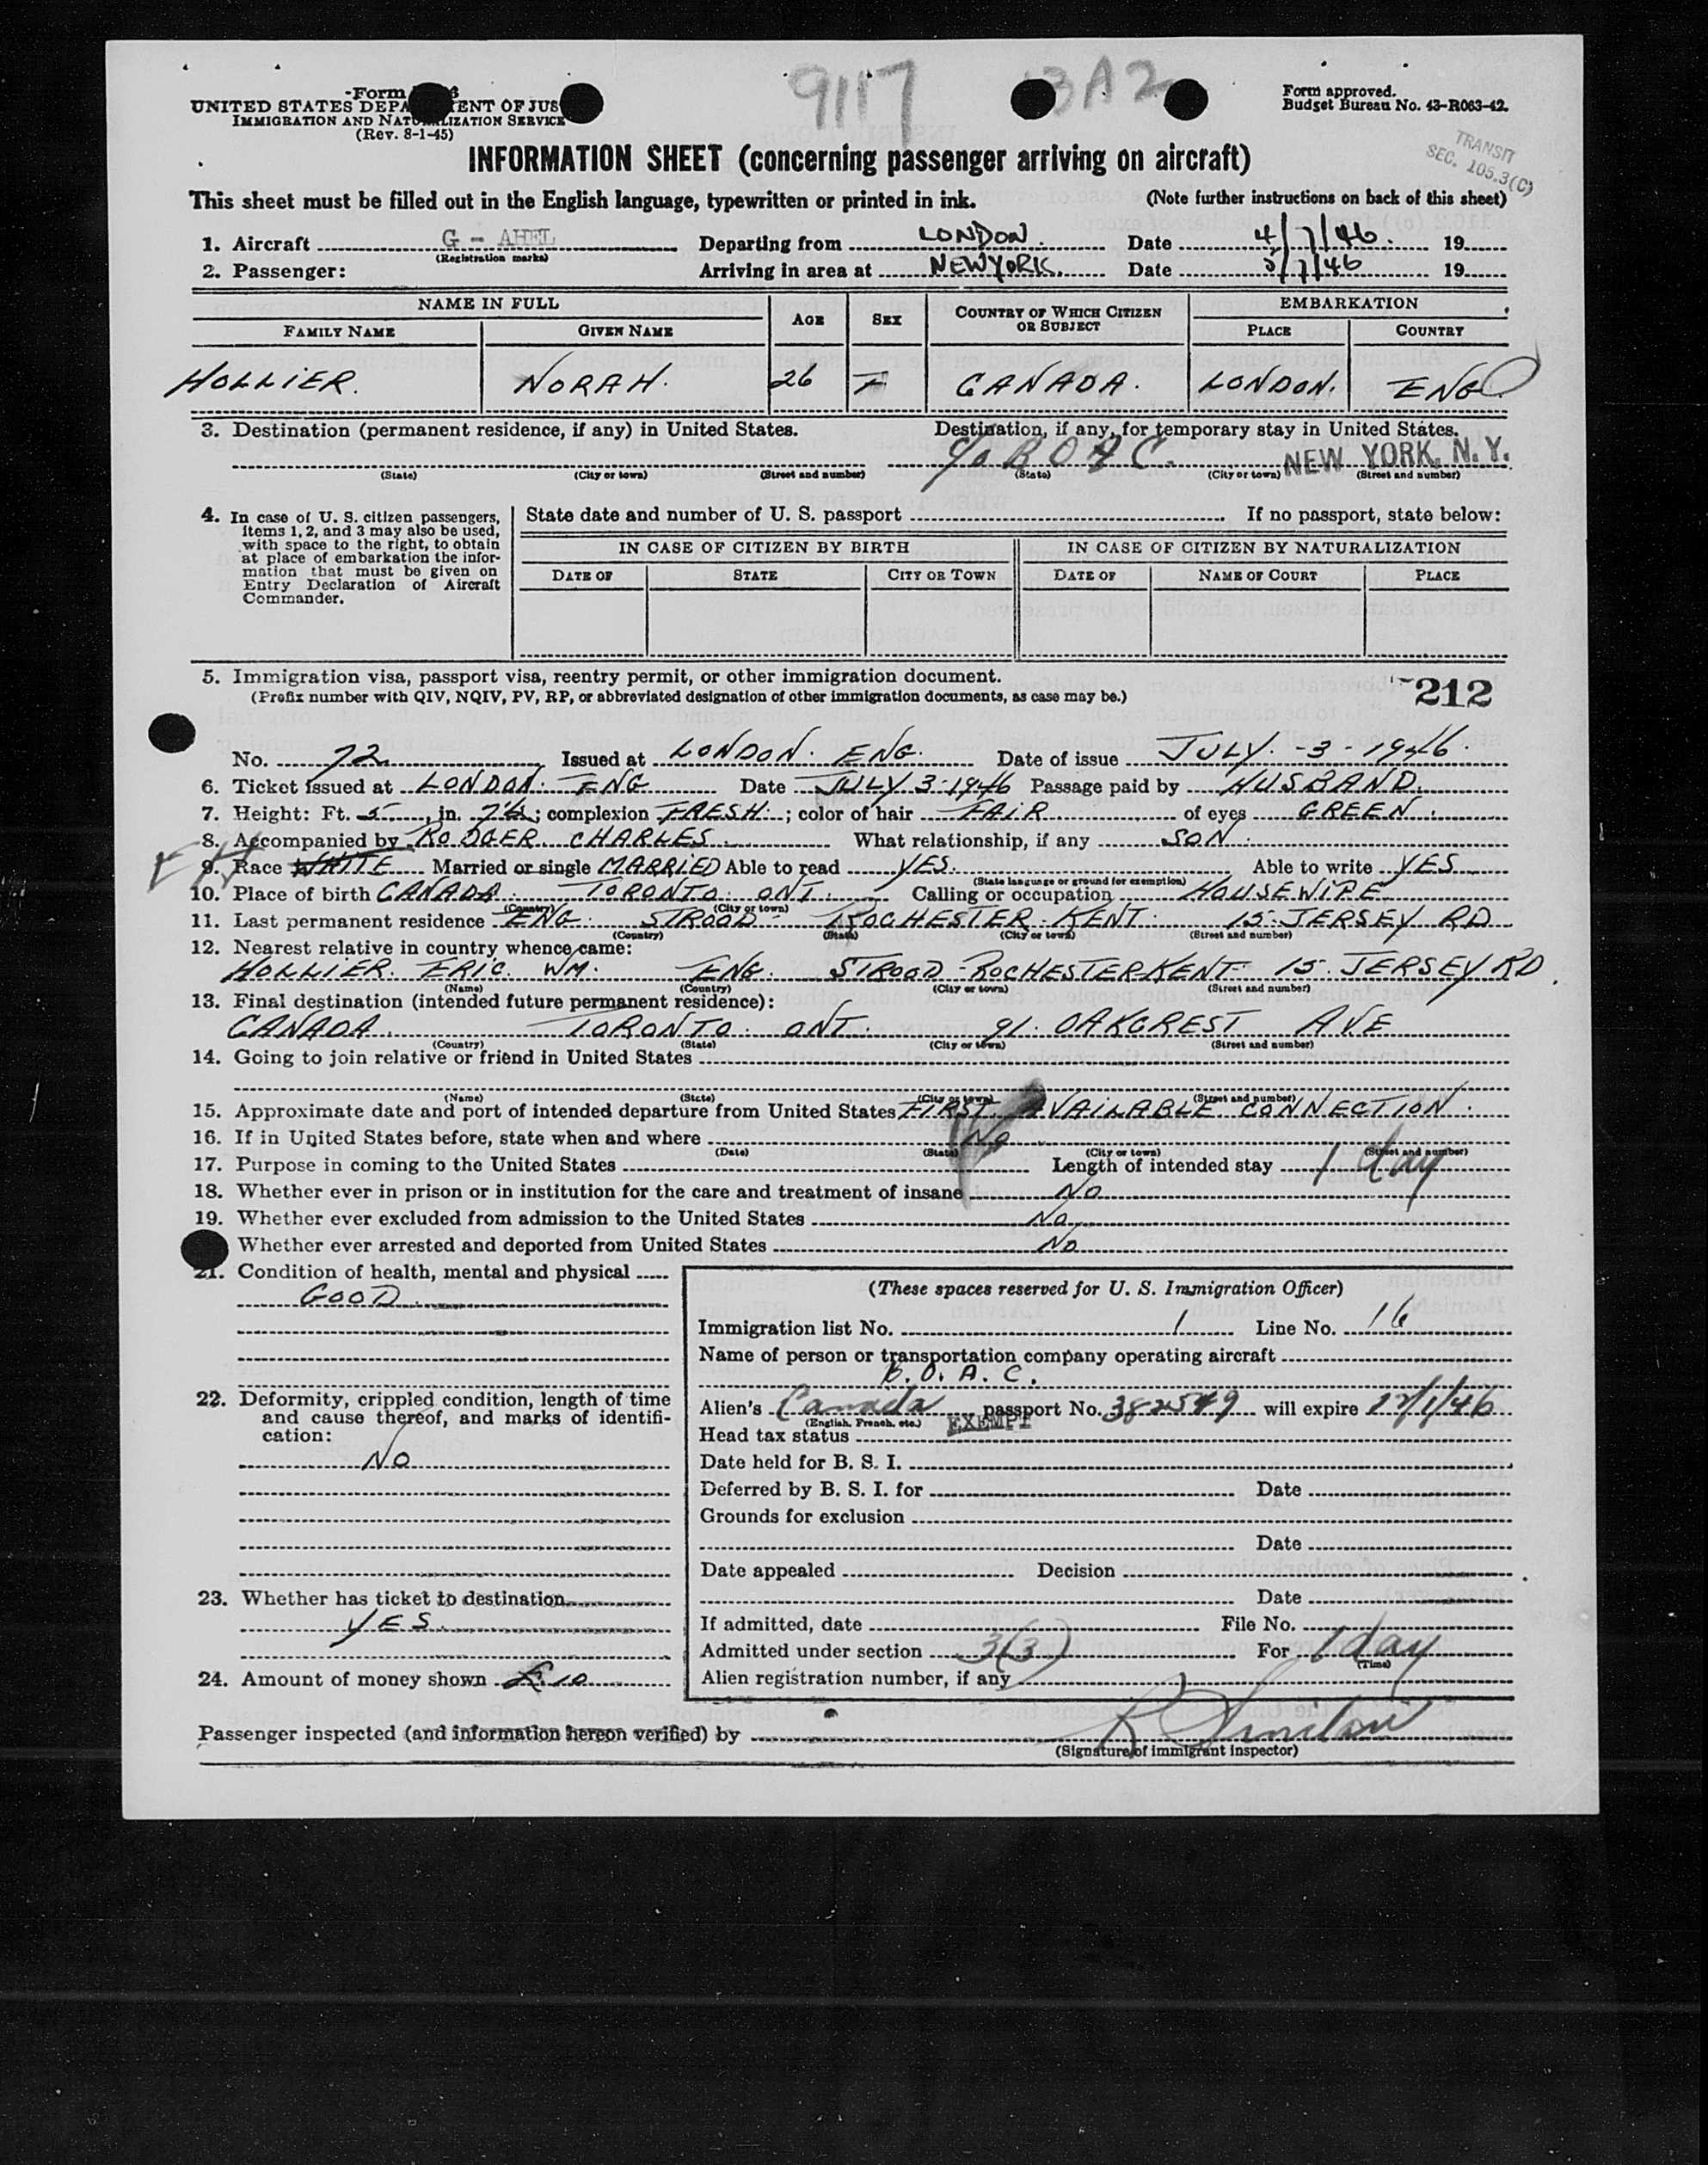 9117 3A2
Form
UNITED STATES DEPA ENT OF JUS
IMMIGRATION AND NATURALIZATION SERVICE
(Rev. 8-1-45)
Form approved.
Budget Bureau No. 43-R063-42.
TRANSIT
SEC. 105.3(C)
INFORMATION SHEET (concerning passenger arriving on aircraft)
This sheet must be filled out in the English language, typewritten or printed in ink. (Note further instructions on back of this sheet)
1. Aircraft G - AHEL Departing from LONDON. Date 4/7/46. 19
(Registration marks)
2. Passenger: Arriving in area at NEWYORK. Date 5/7/46 19
NAME IN FULL AGE SEX COUNTRY OF WHICH CITIZEN OR SUBJECT EMBARKATION
FAMILY NAME GIVEN NAME PLACE COUNTRY
HOLLIER. NORAH. 26 F CANADA. LONDON. ENG
3. Destination (permanent residence, if any) in United States. Destination, if any, for temporary stay in United States.
c/o B O A C. NEW YORK, N.Y.
(State) (City or town) (Street and number) (State) (City or town) (Street and number)
4. In case of U. S. citizen passengers, items 1, 2, and 3 may also be used, with space to the right, to obtain at place of embarkation the information that must be given on Entry Declaration of Aircraft Commander.
State date and number of U. S. passport If no passport, state below:
IN CASE OF CITIZEN BY BIRTH IN CASE OF CITIZEN BY NATURALIZATION
DATE OF STATE CITY OR TOWN DATE OF NAME OF COURT PLACE
5. Immigration visa, passport visa, reentry permit, or other immigration document.
(Prefix number with QIV, NQIV, PV, RP, or abbreviated designation of other immigration documents, as case may be.)
212
No. 72 Issued at LONDON. ENG. Date of issue JULY. -3-1946.
6. Ticket issued at LONDON. ENG Date JULY 3-1946 Passage paid by HUSBAND.
7. Height: Ft. 5, in. 7½; complexion FRESH.; color of hair FAIR of eyes GREEN.
8. Accompanied by RODGER. CHARLES. What relationship, if any SON.
9. Race WHITE Married or single MARRIED Able to read YES. Able to write YES
(State language or ground for exemption)
10. Place of birth CANADA. TORONTO. ONT. Calling or occupation HOUSEWIFE
(Country) (City or town)
11. Last permanent residence ENG. STROOD ROCHESTER. KENT. 15 JERSEY RD
(Country) (State) (City or town) (Street and number)
12. Nearest relative in country whence came:
HOLLIER. ERIC. WM. ENG. STROOD-ROCHESTER KENT. 15. JERSEY RD
(Name) (Country) (City or town) (Street and number)
13. Final destination (intended future permanent residence):
CANADA. TORONTO. ONT. 91. OAKCREST AVE
(Country) (State) (City or town) (Street and number)
14. Going to join relative or friend in United States
(Name) (State) (City or town) (Street and number)
15. Approximate date and port of intended departure from United States FIRST. AVAILABLE CONNECTION.
16. If in United States before, state when and where No
(Date) (State) (City or town) (Street and number)
17. Purpose in coming to the United States Length of intended stay 1 day
18. Whether ever in prison or in institution for the care and treatment of insane No
19. Whether ever excluded from admission to the United States No
Whether ever arrested and deported from United States No
21. Condition of health, mental and physical
GOOD
22. Deformity, crippled condition, length of time and cause thereof, and marks of identification:
NO
23. Whether has ticket to destination
YES.
24. Amount of money shown £10
(These spaces reserved for U. S. Immigration Officer)
Immigration list No. 1 Line No. 16
Name of person or transportation company operating aircraft
B. O. A. C.
Alien's Canada passport No. 382549 will expire 12/1/46
(English, French, etc.)
Head tax status EXEMPT
Date held for B. S. I.
Deferred by B. S. I. for Date
Grounds for exclusion
Date
Date appealed Decision
Date
If admitted, date File No.
Admitted under section 3(3) For 1 day
(Time)
Alien registration number, if any
Passenger inspected (and information hereon verified) by
(Signature of immigrant inspector)